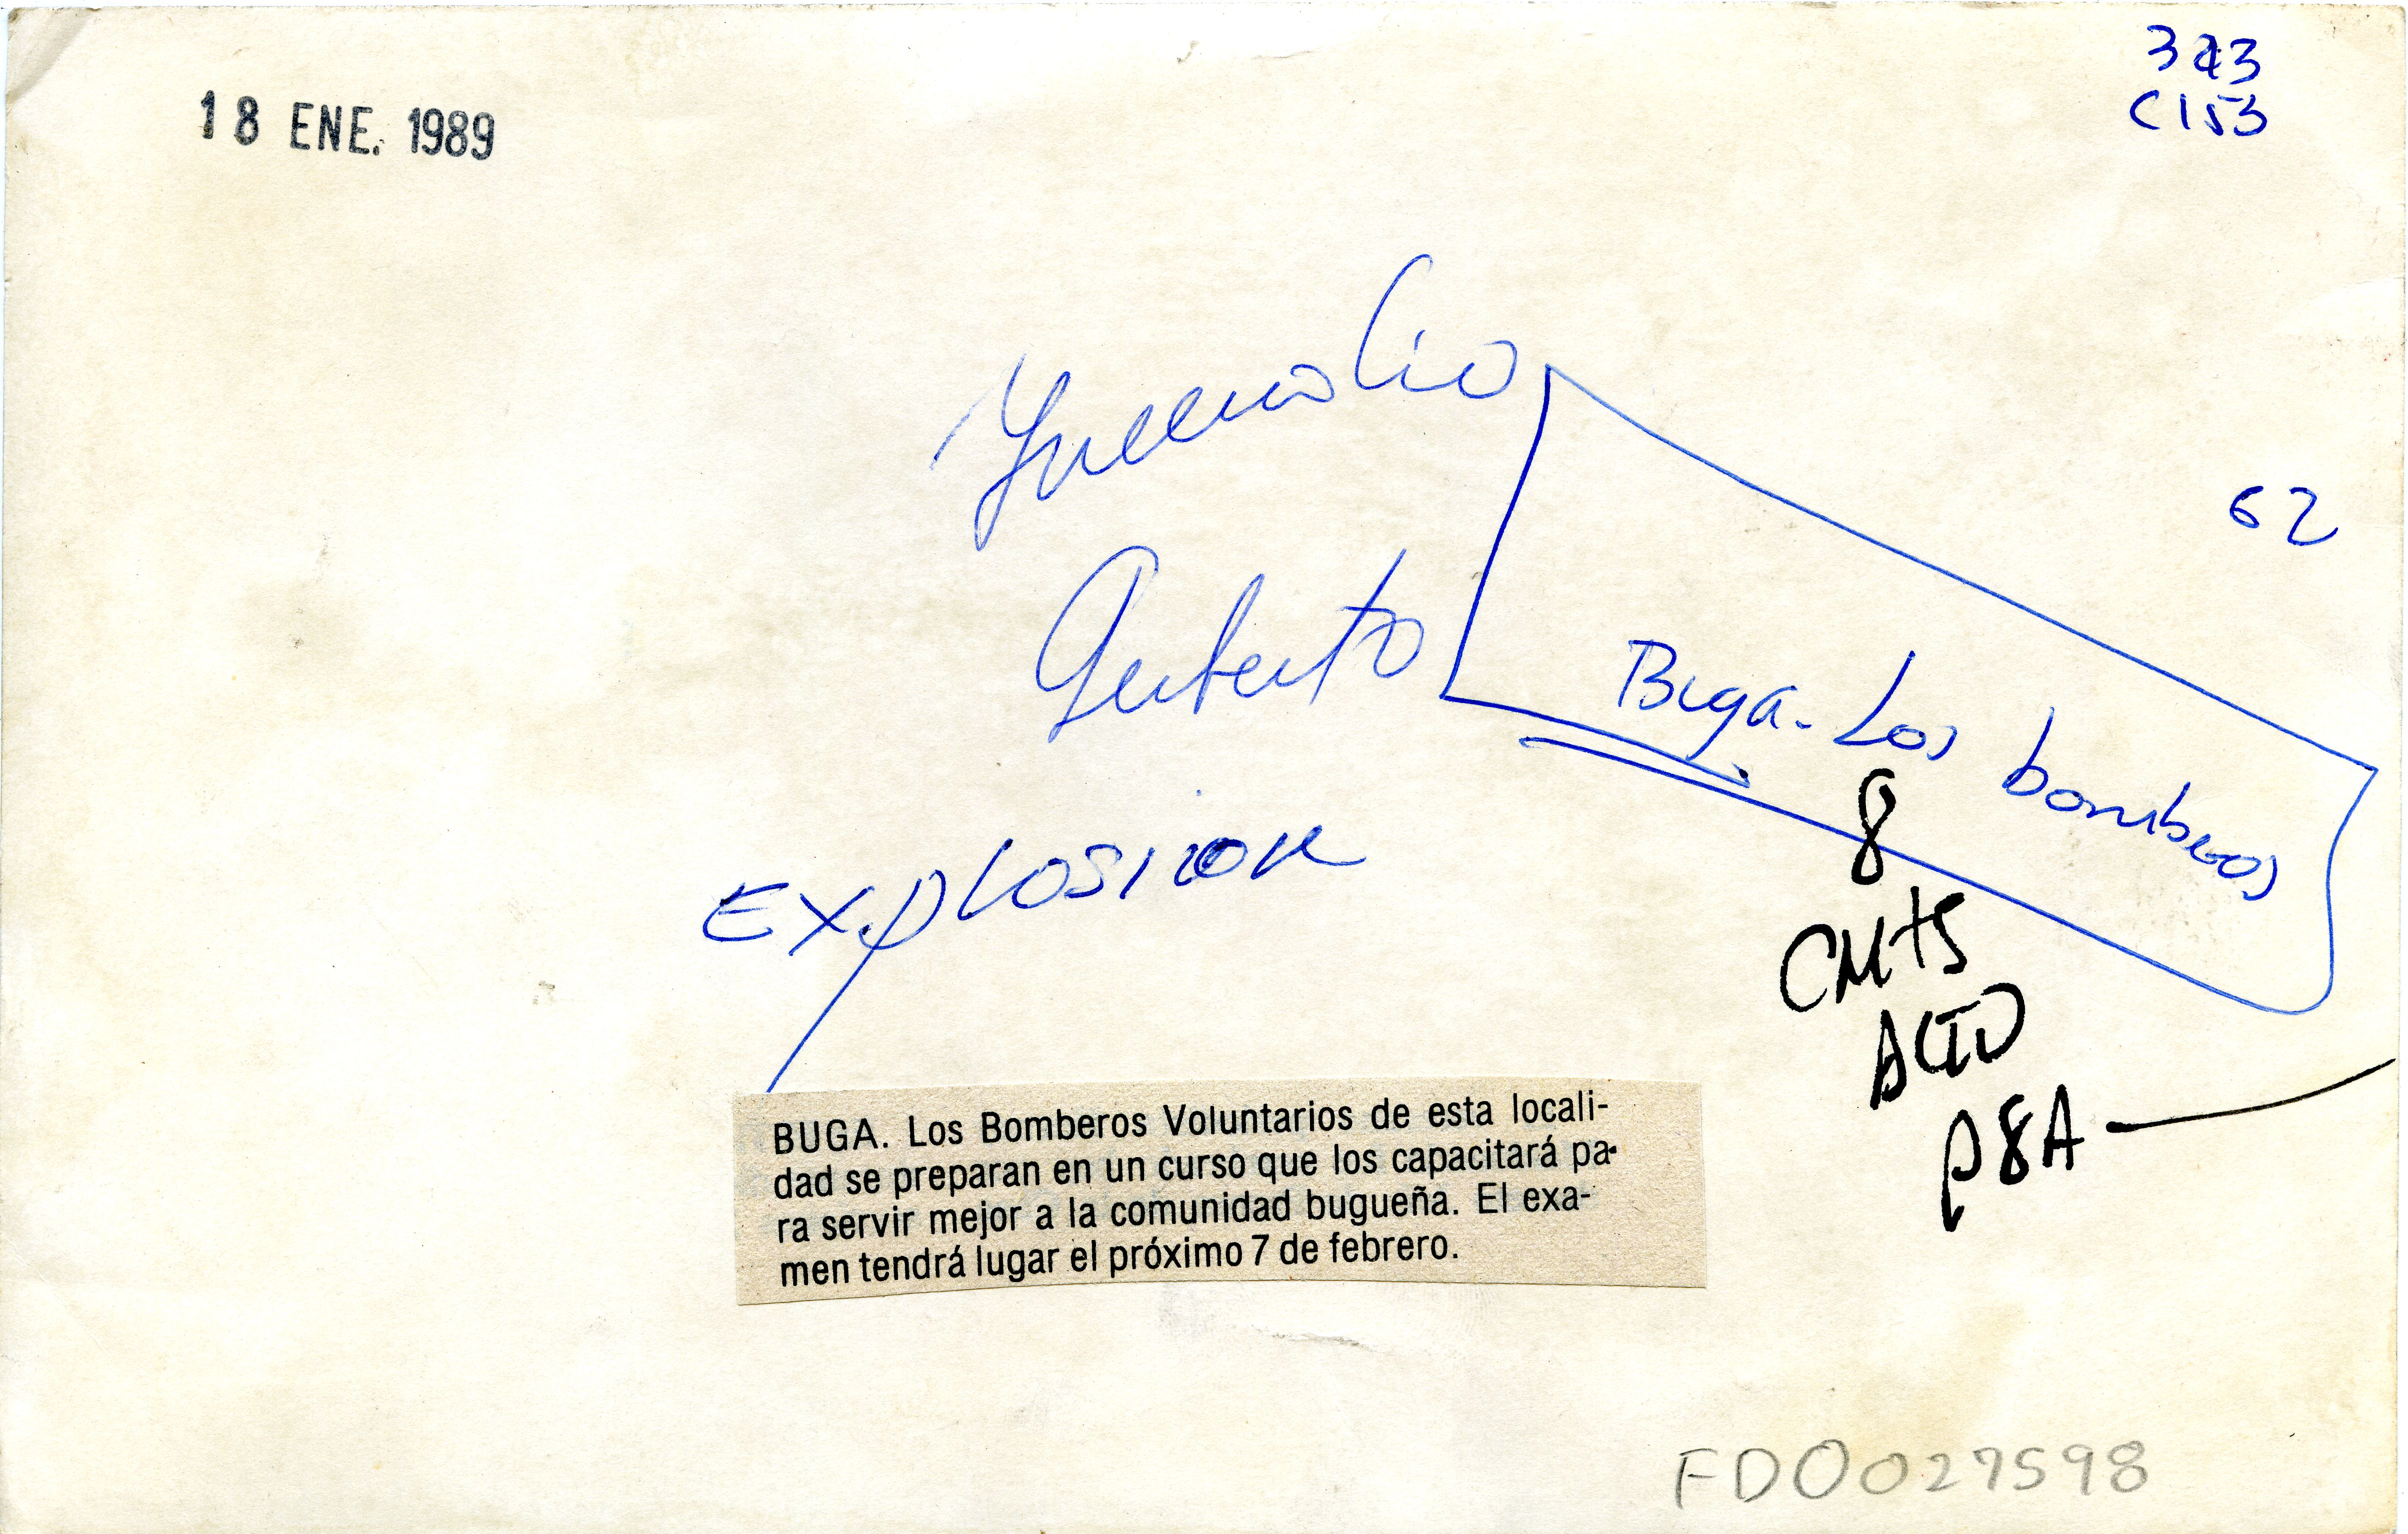 18 ENE. 1989
C153
62
Incendio
Buga. Los bomberos
Explosion
8
CMTS
ALTO
P8A
BUGA. Los Bomberos Voluntarios de esta locali-
dad se preparan en un curso que los capacitará pa-
ra servir mejor a la comunidad bugueña. El exa-
men tendrá lugar el próximo 7 de febrero.
FD0027598